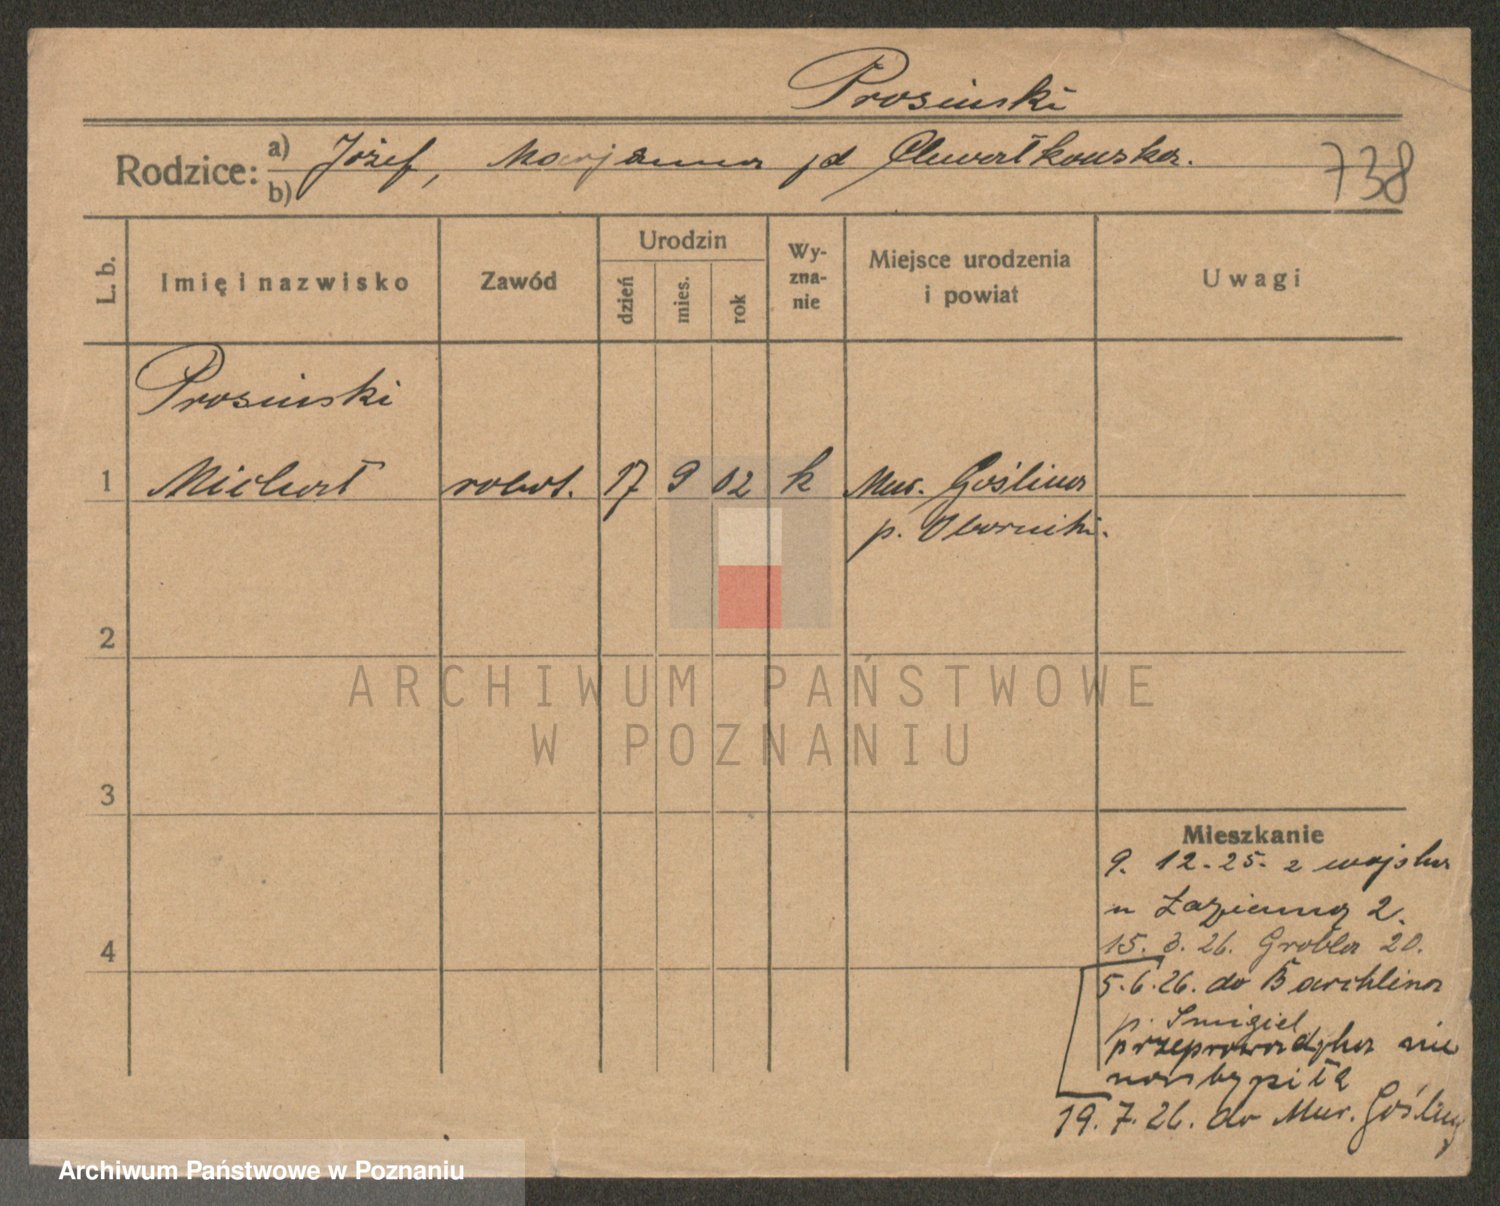 Prosinski
Rodzice: a) b) Józef, Marjanna jd Chwałkowska.
738
L. b.
Imię i nazwisko
Zawód
Urodzin
dzień
mies.
rok
Wy-
zna-
nie
Miejsce urodzenia
i powiat
Uwagi
Prosinski
1 Michał robot. 17 9 02 k Mur. Goślina
p. Oborniki.
2
3
4
Mieszkanie
9. 12. 25. z wojska
u Łazienna 2.
15. 3. 26. Grobla 20.
5. 6. 26. do Barchlina
p. Smigiel
przeprowadzka nie
nastąpiła
19. 7. 26. do Mur. Gośliny
ARCHIWUM PAŃSTWOWE
W POZNANIU
Archiwum Państwowe w Poznaniu